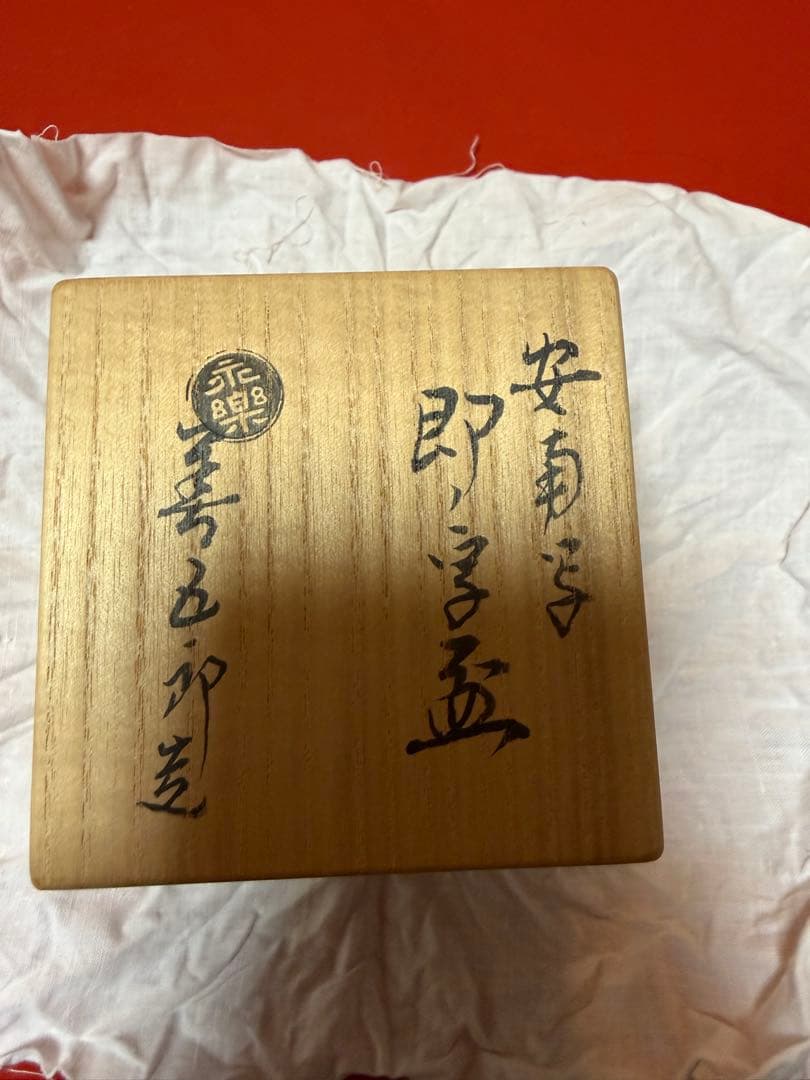 安南写
即ノ字盃
永樂
善五郎造